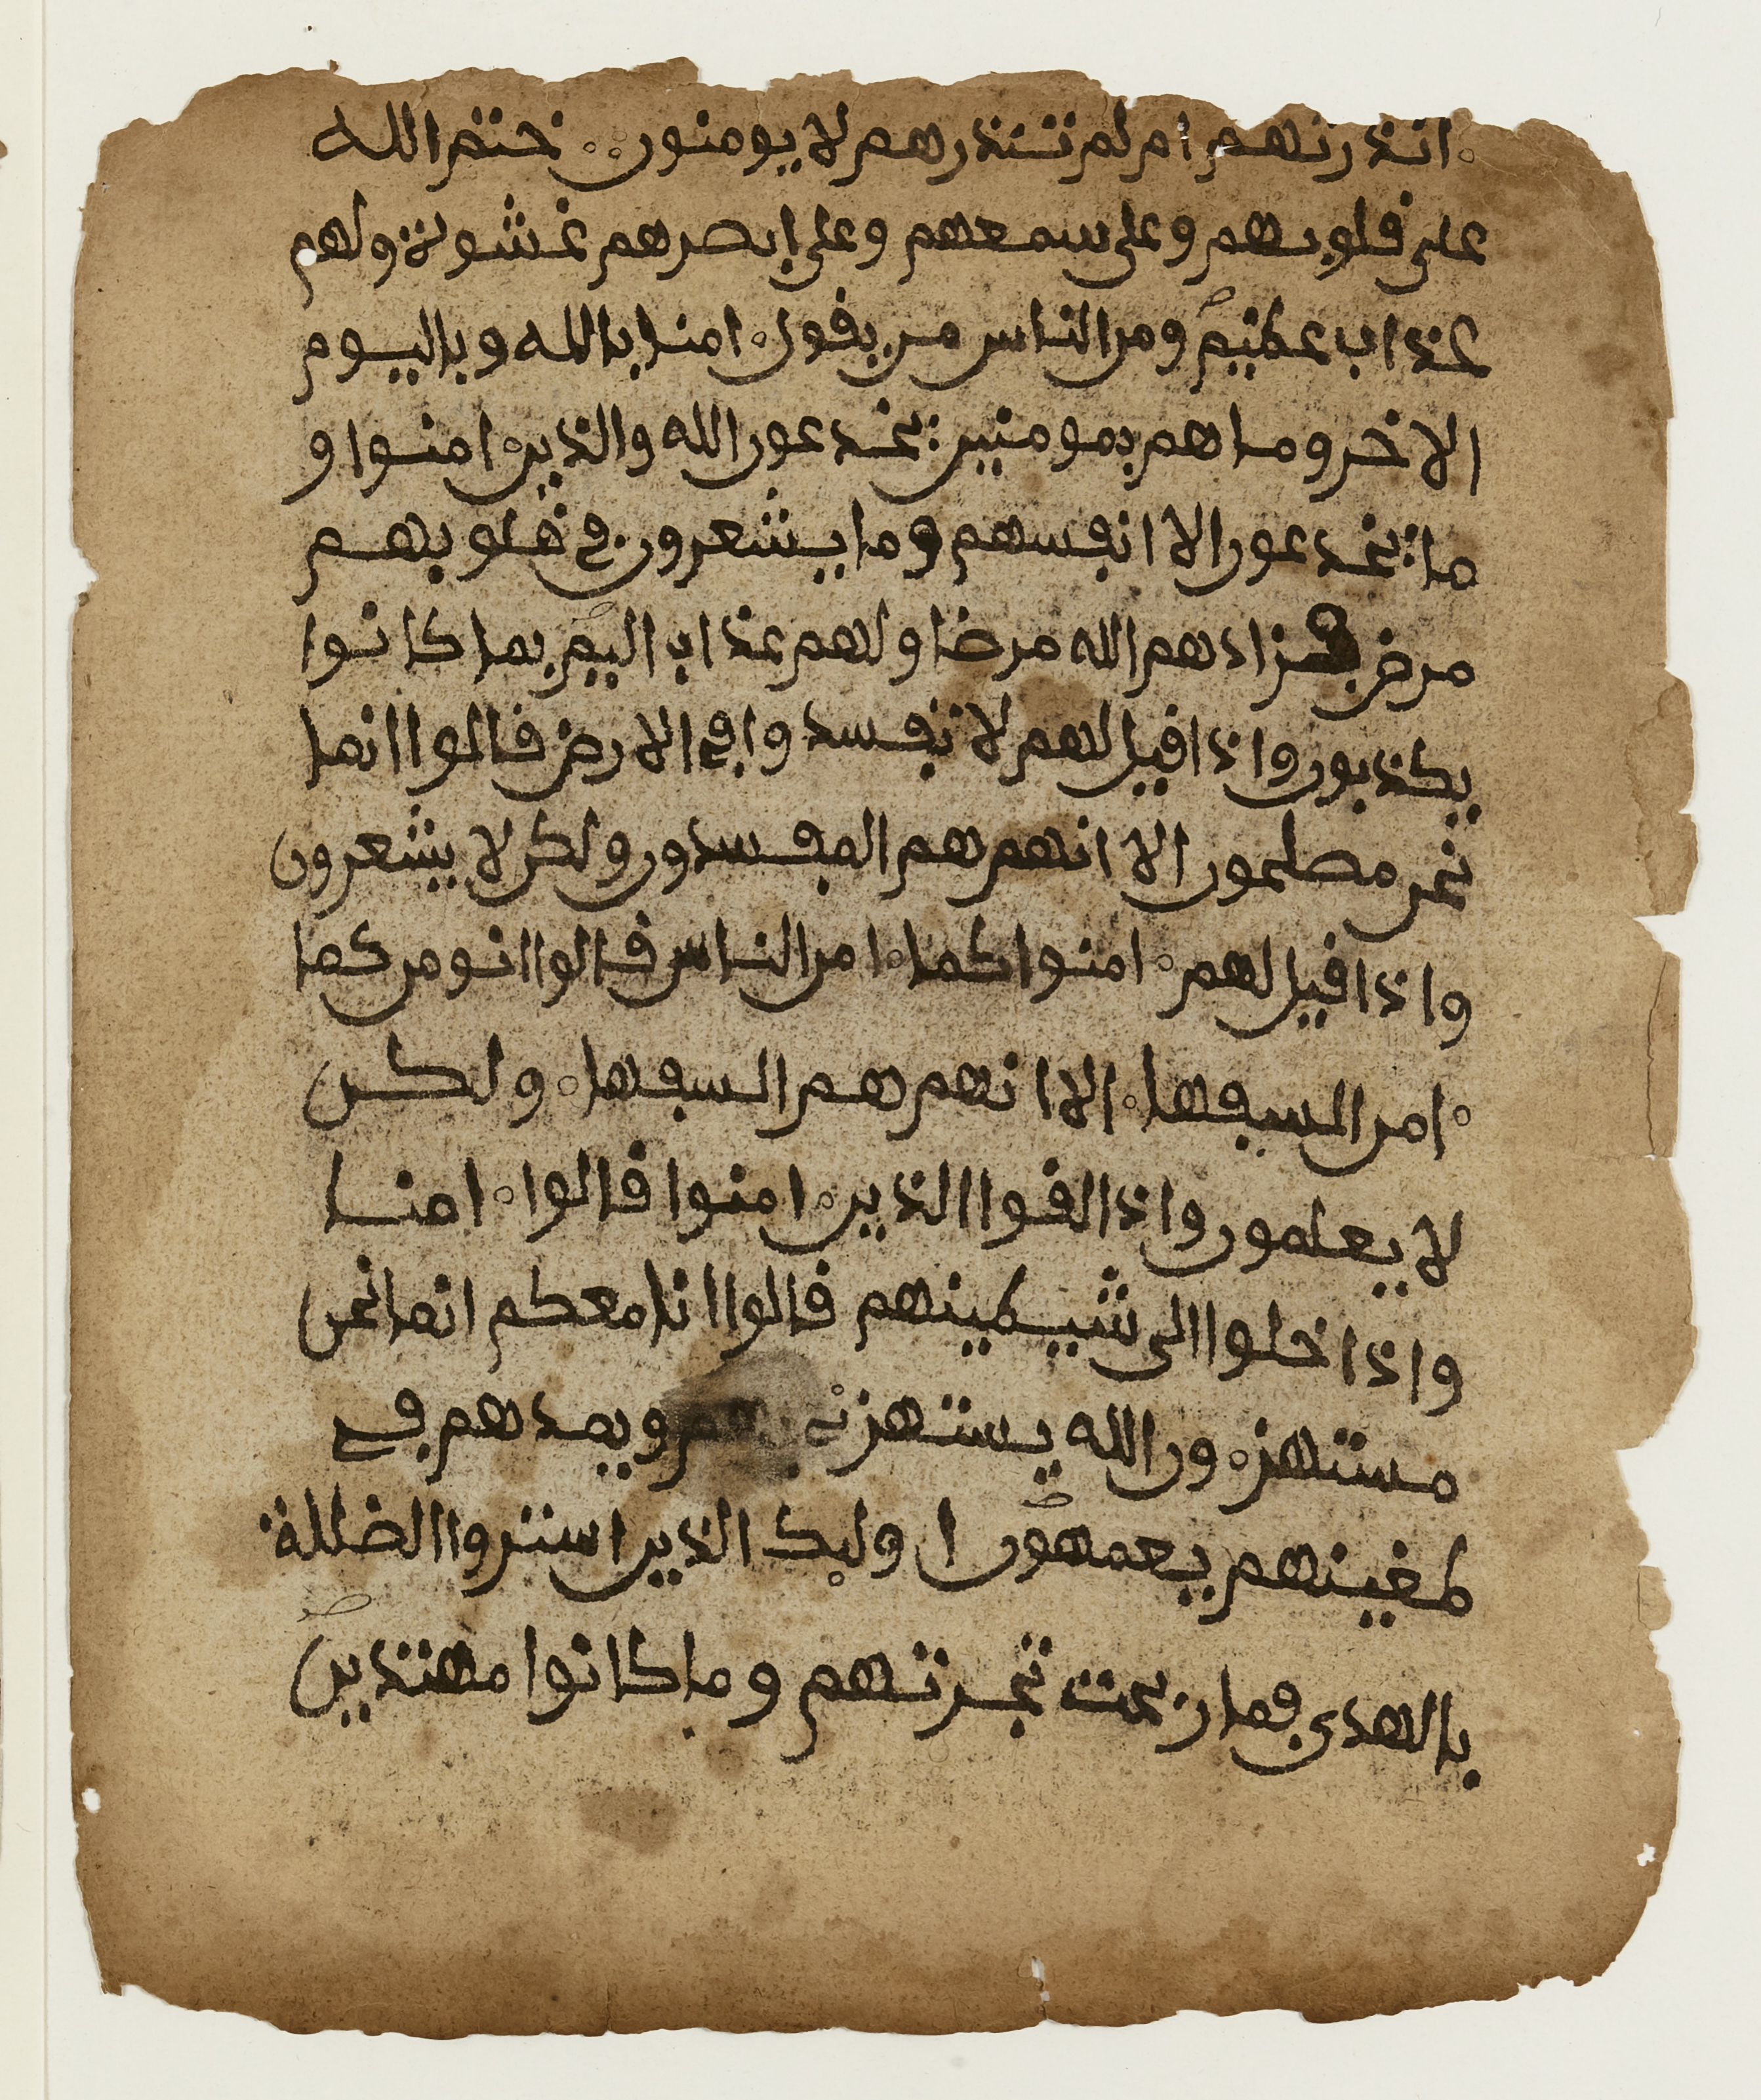 انذرتهم ام لم تنذرهم لا يومنون ختم الله
على قلوبهم وعلى سمعهم وعلى ابصرهم غشوة ولهم
عذاب عظيم ومن الناس من يقول امنا بالله وباليوم
الاخر وما هم بمومنين يخدعون الله والذين امنوا و
ما يخدعون الا انفسهم وما يشعرون في قلوبهم
مرض فزادهم الله مرضا ولهم عذاب اليم بما كانوا
يكذبون واذا قيل لهم لا تفسدوا في الارض قالوا انما
نحن مصلحون الا انهم هم المفسدون ولكن لا يشعرون
واذا قيل لهم امنوا كما امن الناس قالوا انومن كما
امن السفها الا انهم هم السفها ولكن
لا يعلمون واذا لقوا الذين امنوا قالوا امنا
واذا خلوا الى شيطينهم قالوا انا معكم انما نحن
مستهزون الله يستهزئ بهم ويمدهم في
طغينهم يعمهون اوليك الذين اشتروا الضللة
بالهدى فما ربحت تجرتهم وما كانوا مهتدين